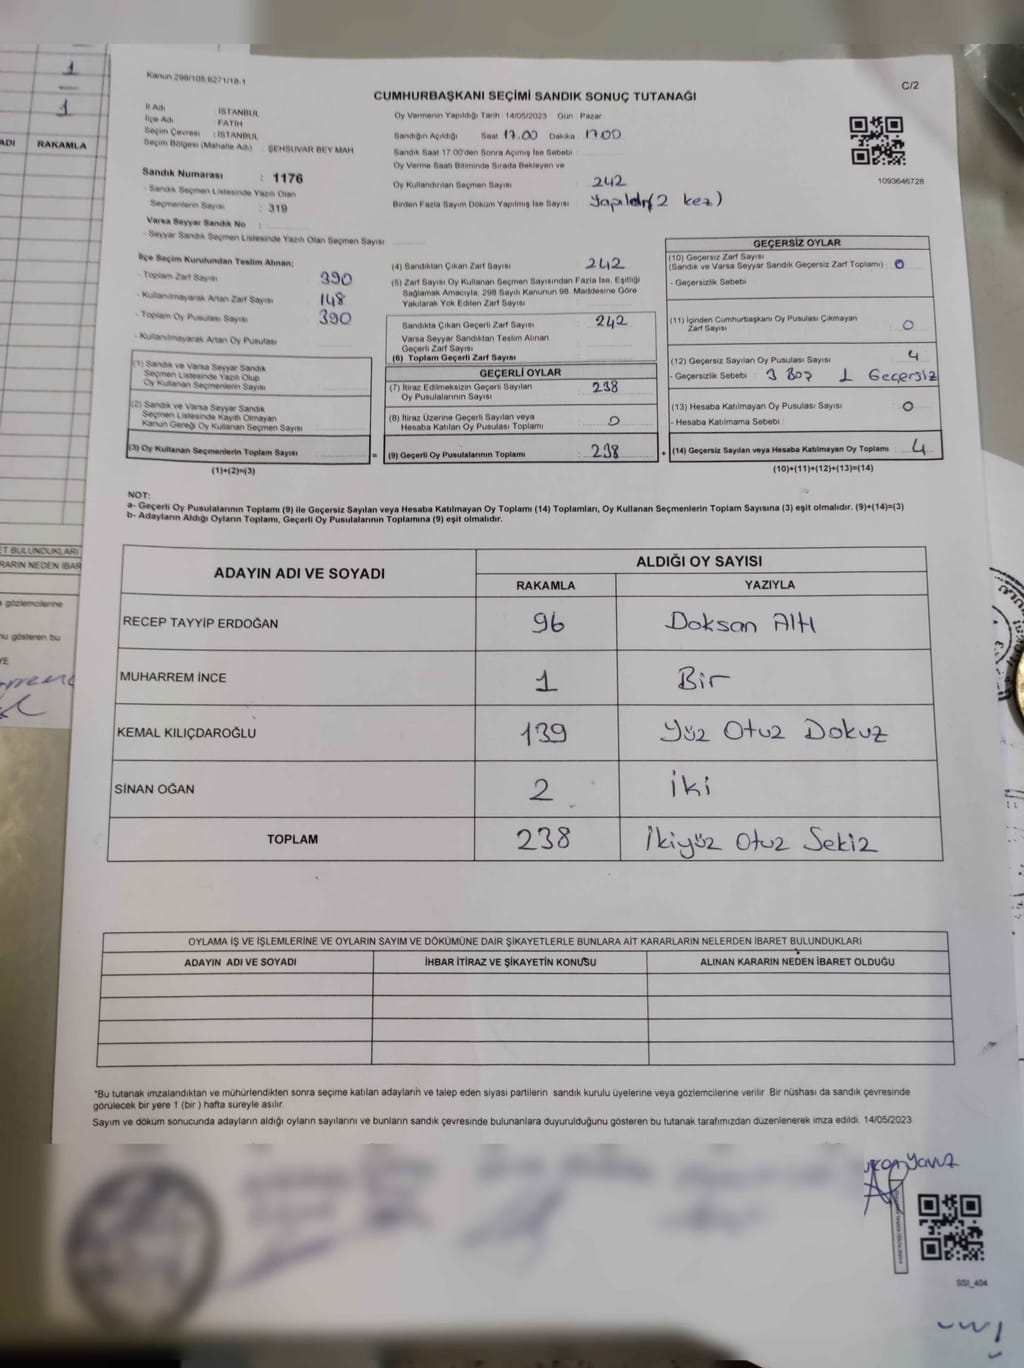 1
1
ADI RAKAMLA
Kanun 298/105,6271/18-1
C/2
CUMHURBAŞKANI SEÇİMİ SANDIK SONUÇ TUTANAĞI
İl Adı : İSTANBUL
İlçe Adı : FATİH
Seçim Çevresi : İSTANBUL
Seçim Bölgesi (Mahalle Adı) : ŞEHSUVAR BEY MAH
Sandık Numarası : 1176
- Sandık Seçmen Listesinde Yazılı Olan
Seçmenlerin Sayısı : 319
Varsa Seyyar Sandık No :
- Seyyar Sandık Seçmen Listesinde Yazılı Olan Seçmen Sayısı
Oy Vermenin Yapıldığı Tarih 14/05/2023 Gün Pazar
Sandığın Açıldığı Saat 17.00 Dakika 17.00
Sandık Saat 17:00'den Sonra Açımış İse Sebebi
Oy Verme Saati Bitiminde Sırada Bekleyen ve
Oy Kullandırılan Seçmen Sayısı : 242
Birden Fazla Sayım Döküm Yapılmış İse Sayısı : Yapıldı (2 kez)
1093646728
İlçe Seçim Kurulundan Teslim Alınan;
- Toplam Zarf Sayısı 390
- Kullanılmayarak Artan Zarf Sayısı 148
- Toplam Oy Pusulası Sayısı 390
- Kullanılmayarak Artan Oy Pusulası
(1) Sandık ve Varsa Seyyar Sandık
Seçmen Listesinde Yazılı Olup
Oy Kullanan Seçmenlerin Sayısı
(2) Sandık ve Varsa Seyyar Sandık
Seçmen Listesinde Kayıtlı Olmayan
Kanun Gereği Oy Kullanan Seçmen Sayısı
(3) Oy Kullanan Seçmenlerin Toplam Sayısı =
(1)+(2)=(3)
(4) Sandıktan Çıkan Zarf Sayısı 242
(5) Zarf Sayısı Oy Kullanan Seçmen Sayısından Fazla İse, Eşitliği
Sağlamak Amacıyla, 298 Sayılı Kanunun 98. Maddesine Göre
Yakılarak Yok Edilen Zarf Sayısı
Sandıkta Çıkan Geçerli Zarf Sayısı 242
Varsa Seyyar Sandıktan Teslim Alınan
Geçerli Zarf Sayısı
(6) Toplam Geçerli Zarf Sayısı
GEÇERLİ OYLAR
(7) İtiraz Edilmeksizin Geçerli Sayılan
Oy Pusulalarının Sayısı 238
(8) İtiraz Üzerine Geçerli Sayılan veya
Hesaba Katılan Oy Pusulası Toplamı 0
(9) Geçerli Oy Pusulalarının Toplamı 238 +
GEÇERSİZ OYLAR
(10) Geçersiz Zarf Sayısı
(Sandık ve Varsa Seyyar Sandık Geçersiz Zarf Toplamı) : 0
- Geçersizlik Sebebi
(11) İçinden Cumhurbaşkanı Oy Pusulası Çıkmayan
Zarf Sayısı 0
(12) Geçersiz Sayılan Oy Pusulası Sayısı 4
- Geçersizlik Sebebi : 3 Boş 1 Geçersiz
(13) Hesaba Katılmayan Oy Pusulası Sayısı 0
- Hesaba Katılmama Sebebi
(14) Geçersiz Sayılan veya Hesaba Katılmayan Oy Toplamı : 4
(10)+(11)+(12)+(13)=(14)
NOT:
a- Geçerli Oy Pusulalarının Toplamı (9) ile Geçersiz Sayılan veya Hesaba Katılmayan Oy Toplamı (14) Toplamları, Oy Kullanan Seçmenlerin Toplam Sayısına (3) eşit olmalıdır. (9)+(14)=(3)
b- Adayların Aldığı Oyların Toplamı, Geçerli Oy Pusulalarının Toplamına (9) eşit olmalıdır.
ADAYIN ADI VE SOYADI ALDIĞI OY SAYISI
RAKAMLA YAZIYLA
RECEP TAYYİP ERDOĞAN 96 Doksan Altı
MUHARREM İNCE 1 Bir
KEMAL KILIÇDAROĞLU 139 Yüz Otuz Dokuz
SİNAN OĞAN 2 İki
TOPLAM 238 İkiyüz Otuz Sekiz
OYLAMA İŞ VE İŞLEMLERİNE VE OYLARIN SAYIM VE DÖKÜMÜNE DAİR ŞİKAYETLERLE BUNLARA AİT KARARLARIN NELERDEN İBARET BULUNDUKLARI
ADAYIN ADI VE SOYADI İHBAR İTİRAZ VE ŞİKAYETİN KONUSU ALINAN KARARIN NEDEN İBARET OLDUĞU
*Bu tutanak imzalandıktan ve mühürlendikten sonra seçime katılan adayların ve talep eden siyasi partilerin sandık kurulu üyelerine veya gözlemcilerine verilir. Bir nüshası da sandık çevresinde
görülecek bir yere 1 (bir) hafta süreyle asılır.
Sayım ve döküm sonucunda adayların aldığı oyların sayılarını ve bunların sandık çevresinde bulunanlara duyurulduğunu gösteren bu tutanak tarafımızdan düzenlenerek imza edildi. 14/05/2023
ET BULUNDUKLARI
RARIN NEDEN İBAR
gözlemcilerine
nu gösteren bu
Yavuz
SSI_404